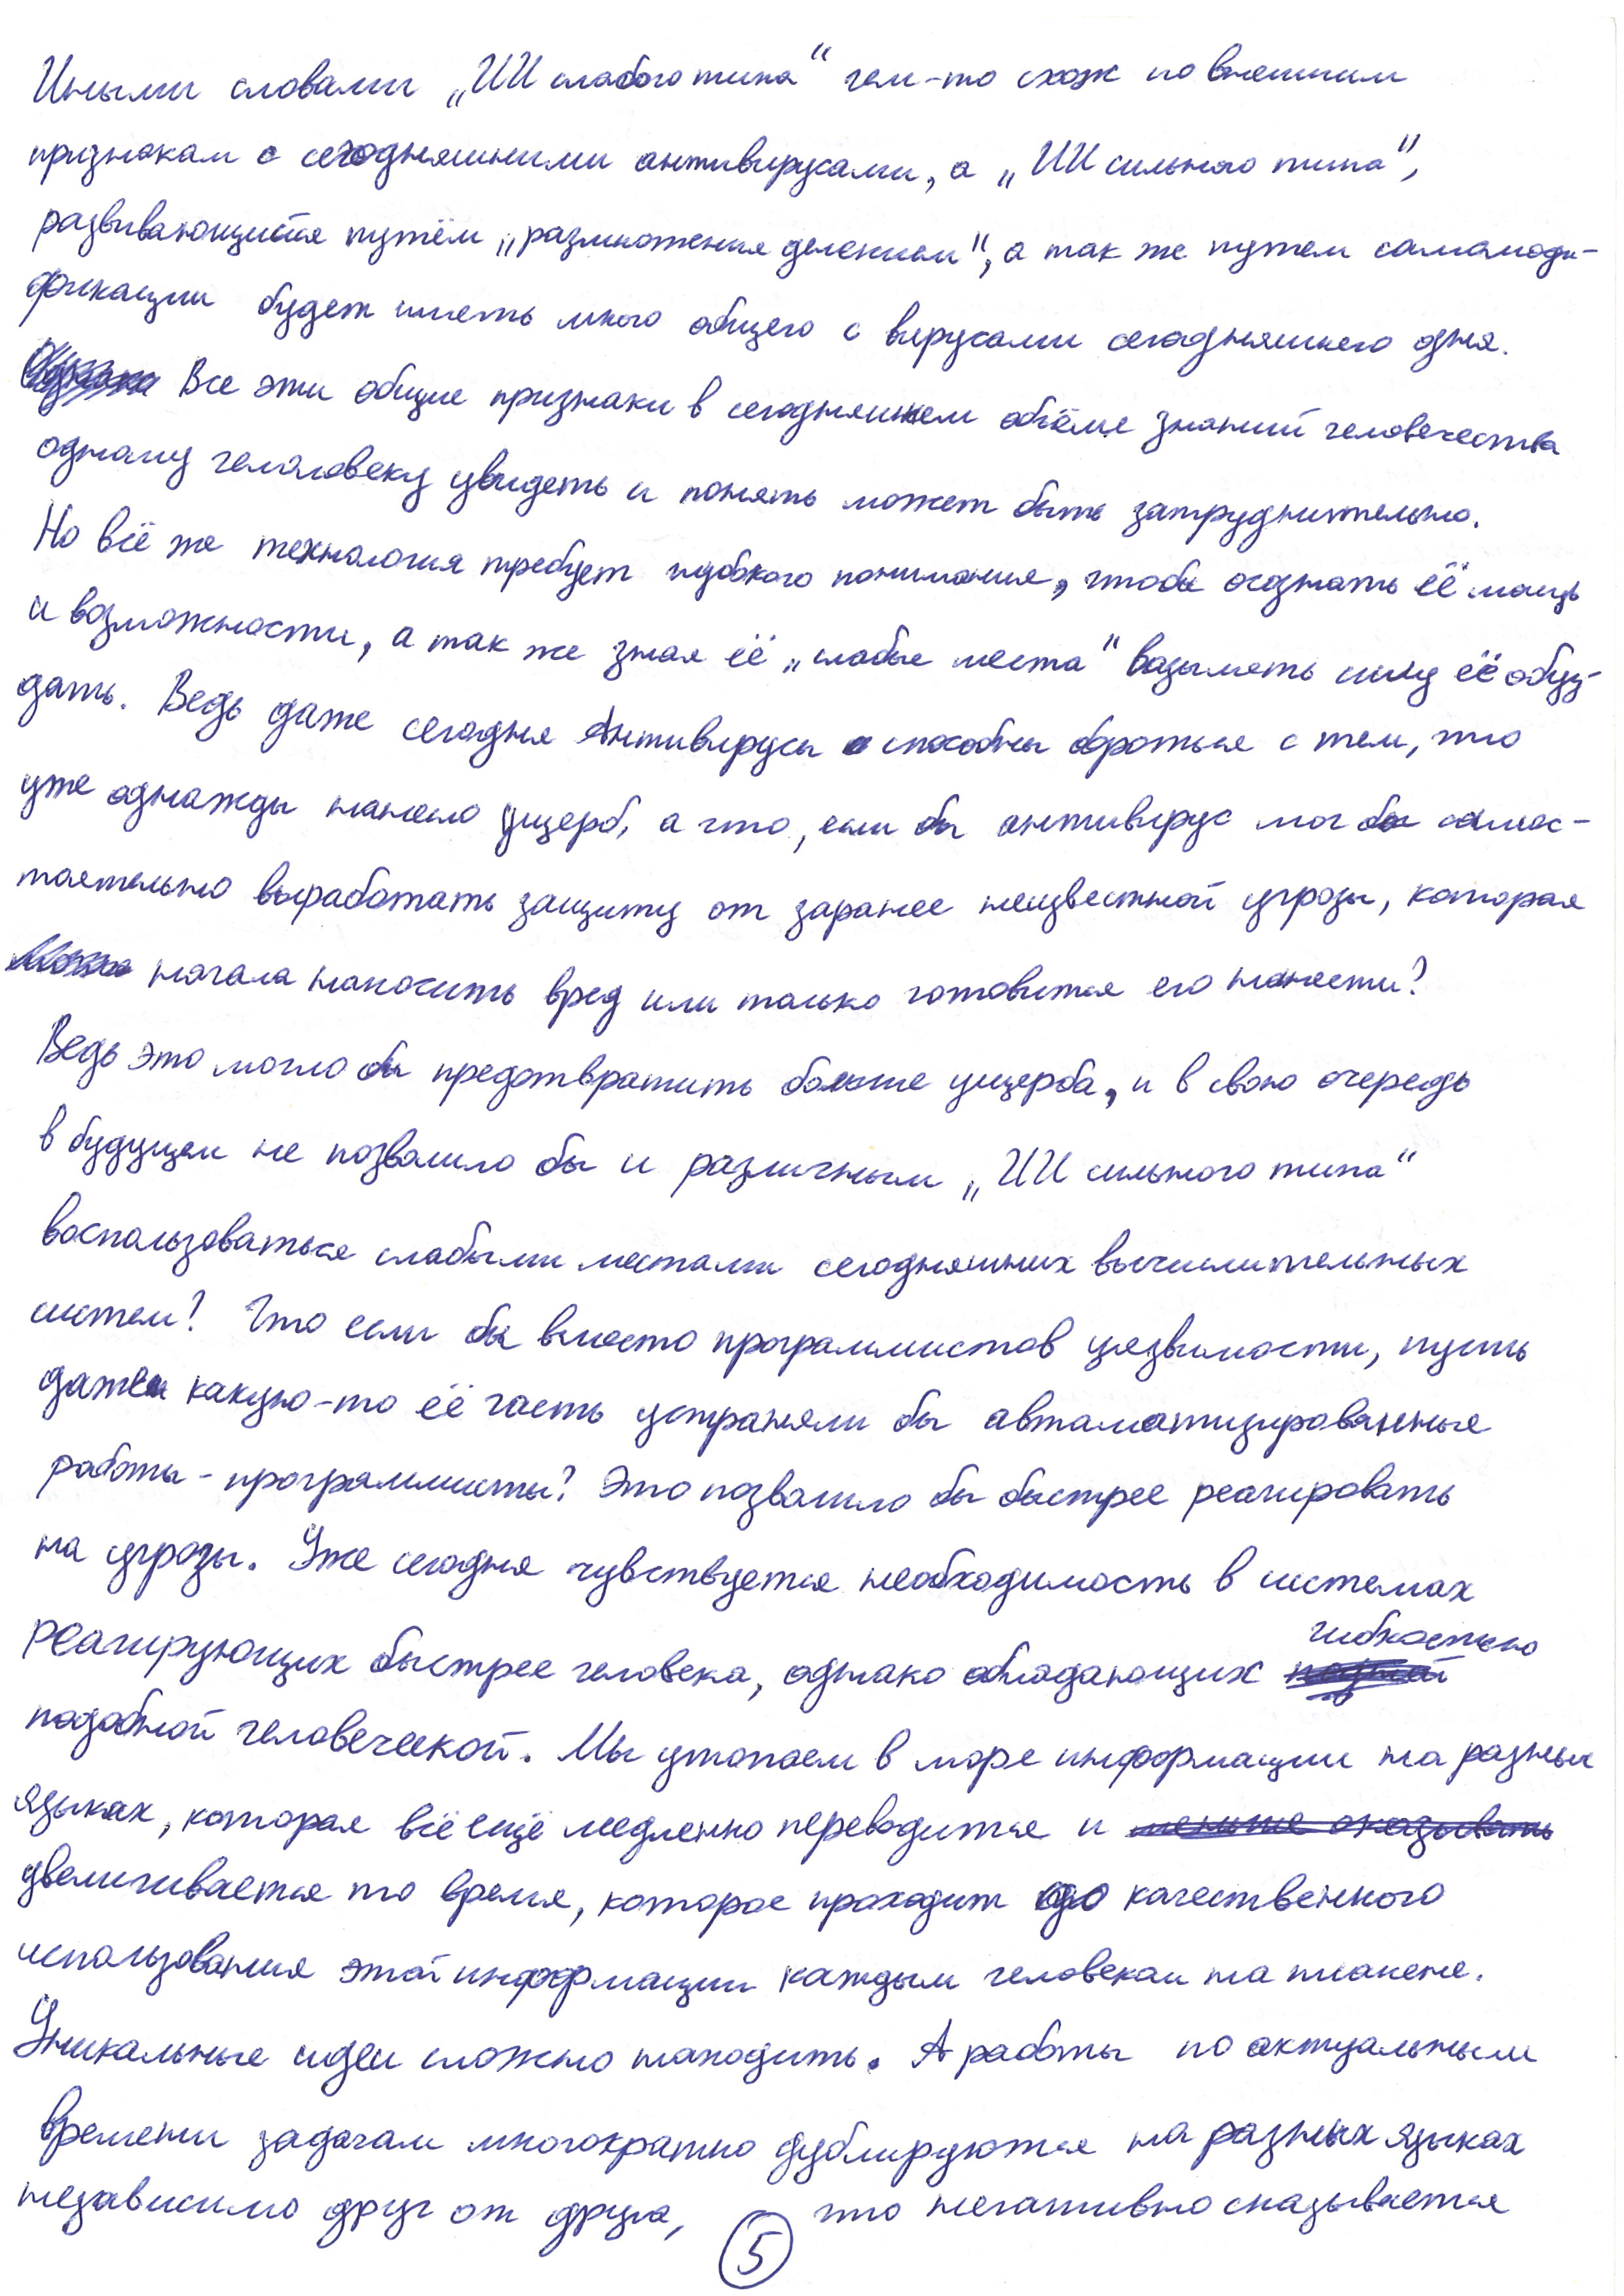 Иными словами „ИИ слабого типа“ чем-то схож по внешним
признакам с сегодняшними антивирусами, а „ИИ сильного типа“,
развивающийся путём „размножения делением“, а так же путем самомоди-
фикации будет иметь много общего с вирусами сегодняшнего дня.
Все эти общие признаки в сегодняшнем объёме знаний человечества
одному человеку увидеть и понять может быть затруднительно.
Но всё же технология требует глубокого понимания, чтобы осознать её мощь
и возможности, а так же зная её „слабые места“ возыметь силу её обуз-
дать. Ведь даже сегодня Антивирусы способны бороться с тем, что
уже однажды нанесло ущерб, а что, если бы антивирус мог бы самос-
тоятельно выработать защиту от заранее неизвестной угрозы, которая
начала наносить вред или только готовится его нанести?
Ведь это могло бы предотвратить больше ущерба, и в свою очередь
в будущем не позволило бы и различным „ИИ сильного типа“
воспользоваться слабыми местами сегодняшних вычислительных
систем? Что если бы вместо программистов уязвимости, пусть
даже какую-то её часть устраняли бы автоматизированные
роботы-программисты? Это позволило бы быстрее реагировать
на угрозы. Уже сегодня чувствуется необходимость в системах
реагирующих быстрее человека, однако обладающих гибкостью
подобной человеческой. Мы утопаем в море информации на разных
языках, которая всё ещё медленно переводится и меньше оказывать
увеличивается то время, которое проходит до качественного
использования этой информации каждым человеком на планете.
Уникальные идеи сложно находить. А работы по актуальным
времени задачам многократно дублируются на разных языках
независимо друг от друга, что негативно сказывается
5